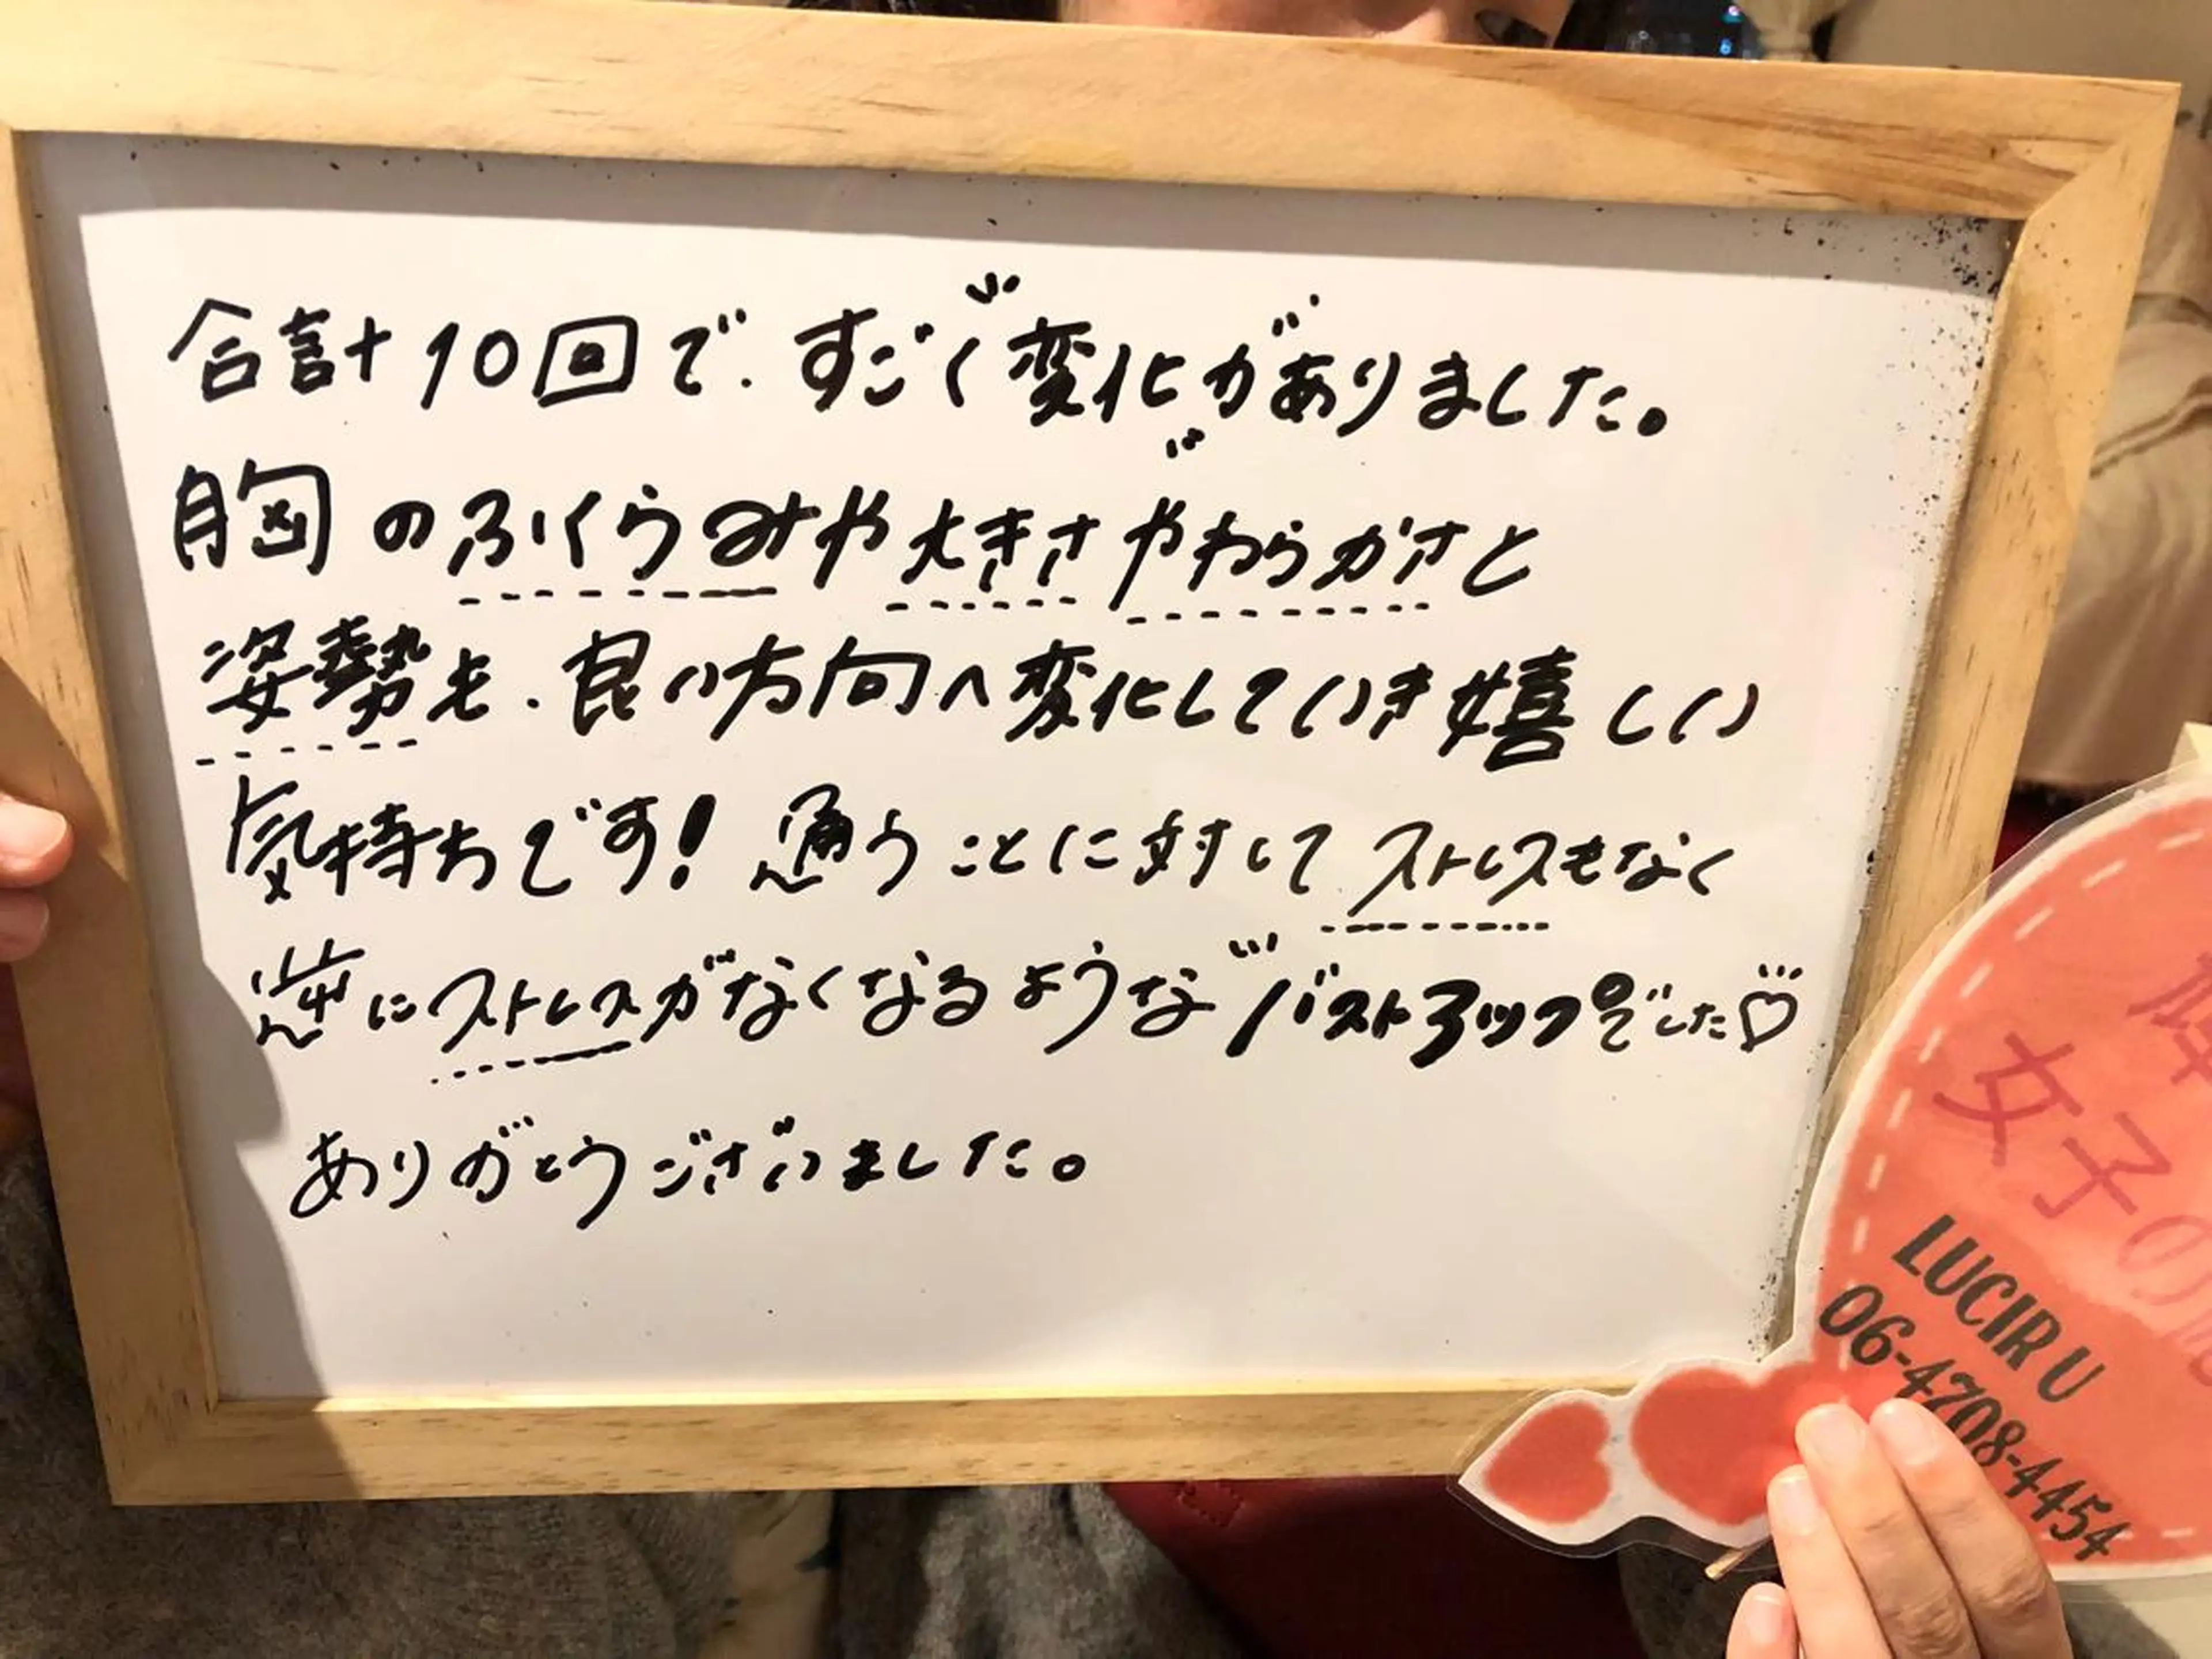 合計10回で、すごく変化がありました。
胸のふくらみや大きさやわらかさと
姿勢も、良い方向へ変化していき嬉しい
気持ちです!通うことに対してストレスもなく
逆にストレスがなくなるようなバストアップでした♡
ありがとうございました。
女子の
LUCIR U
06-4708-4454